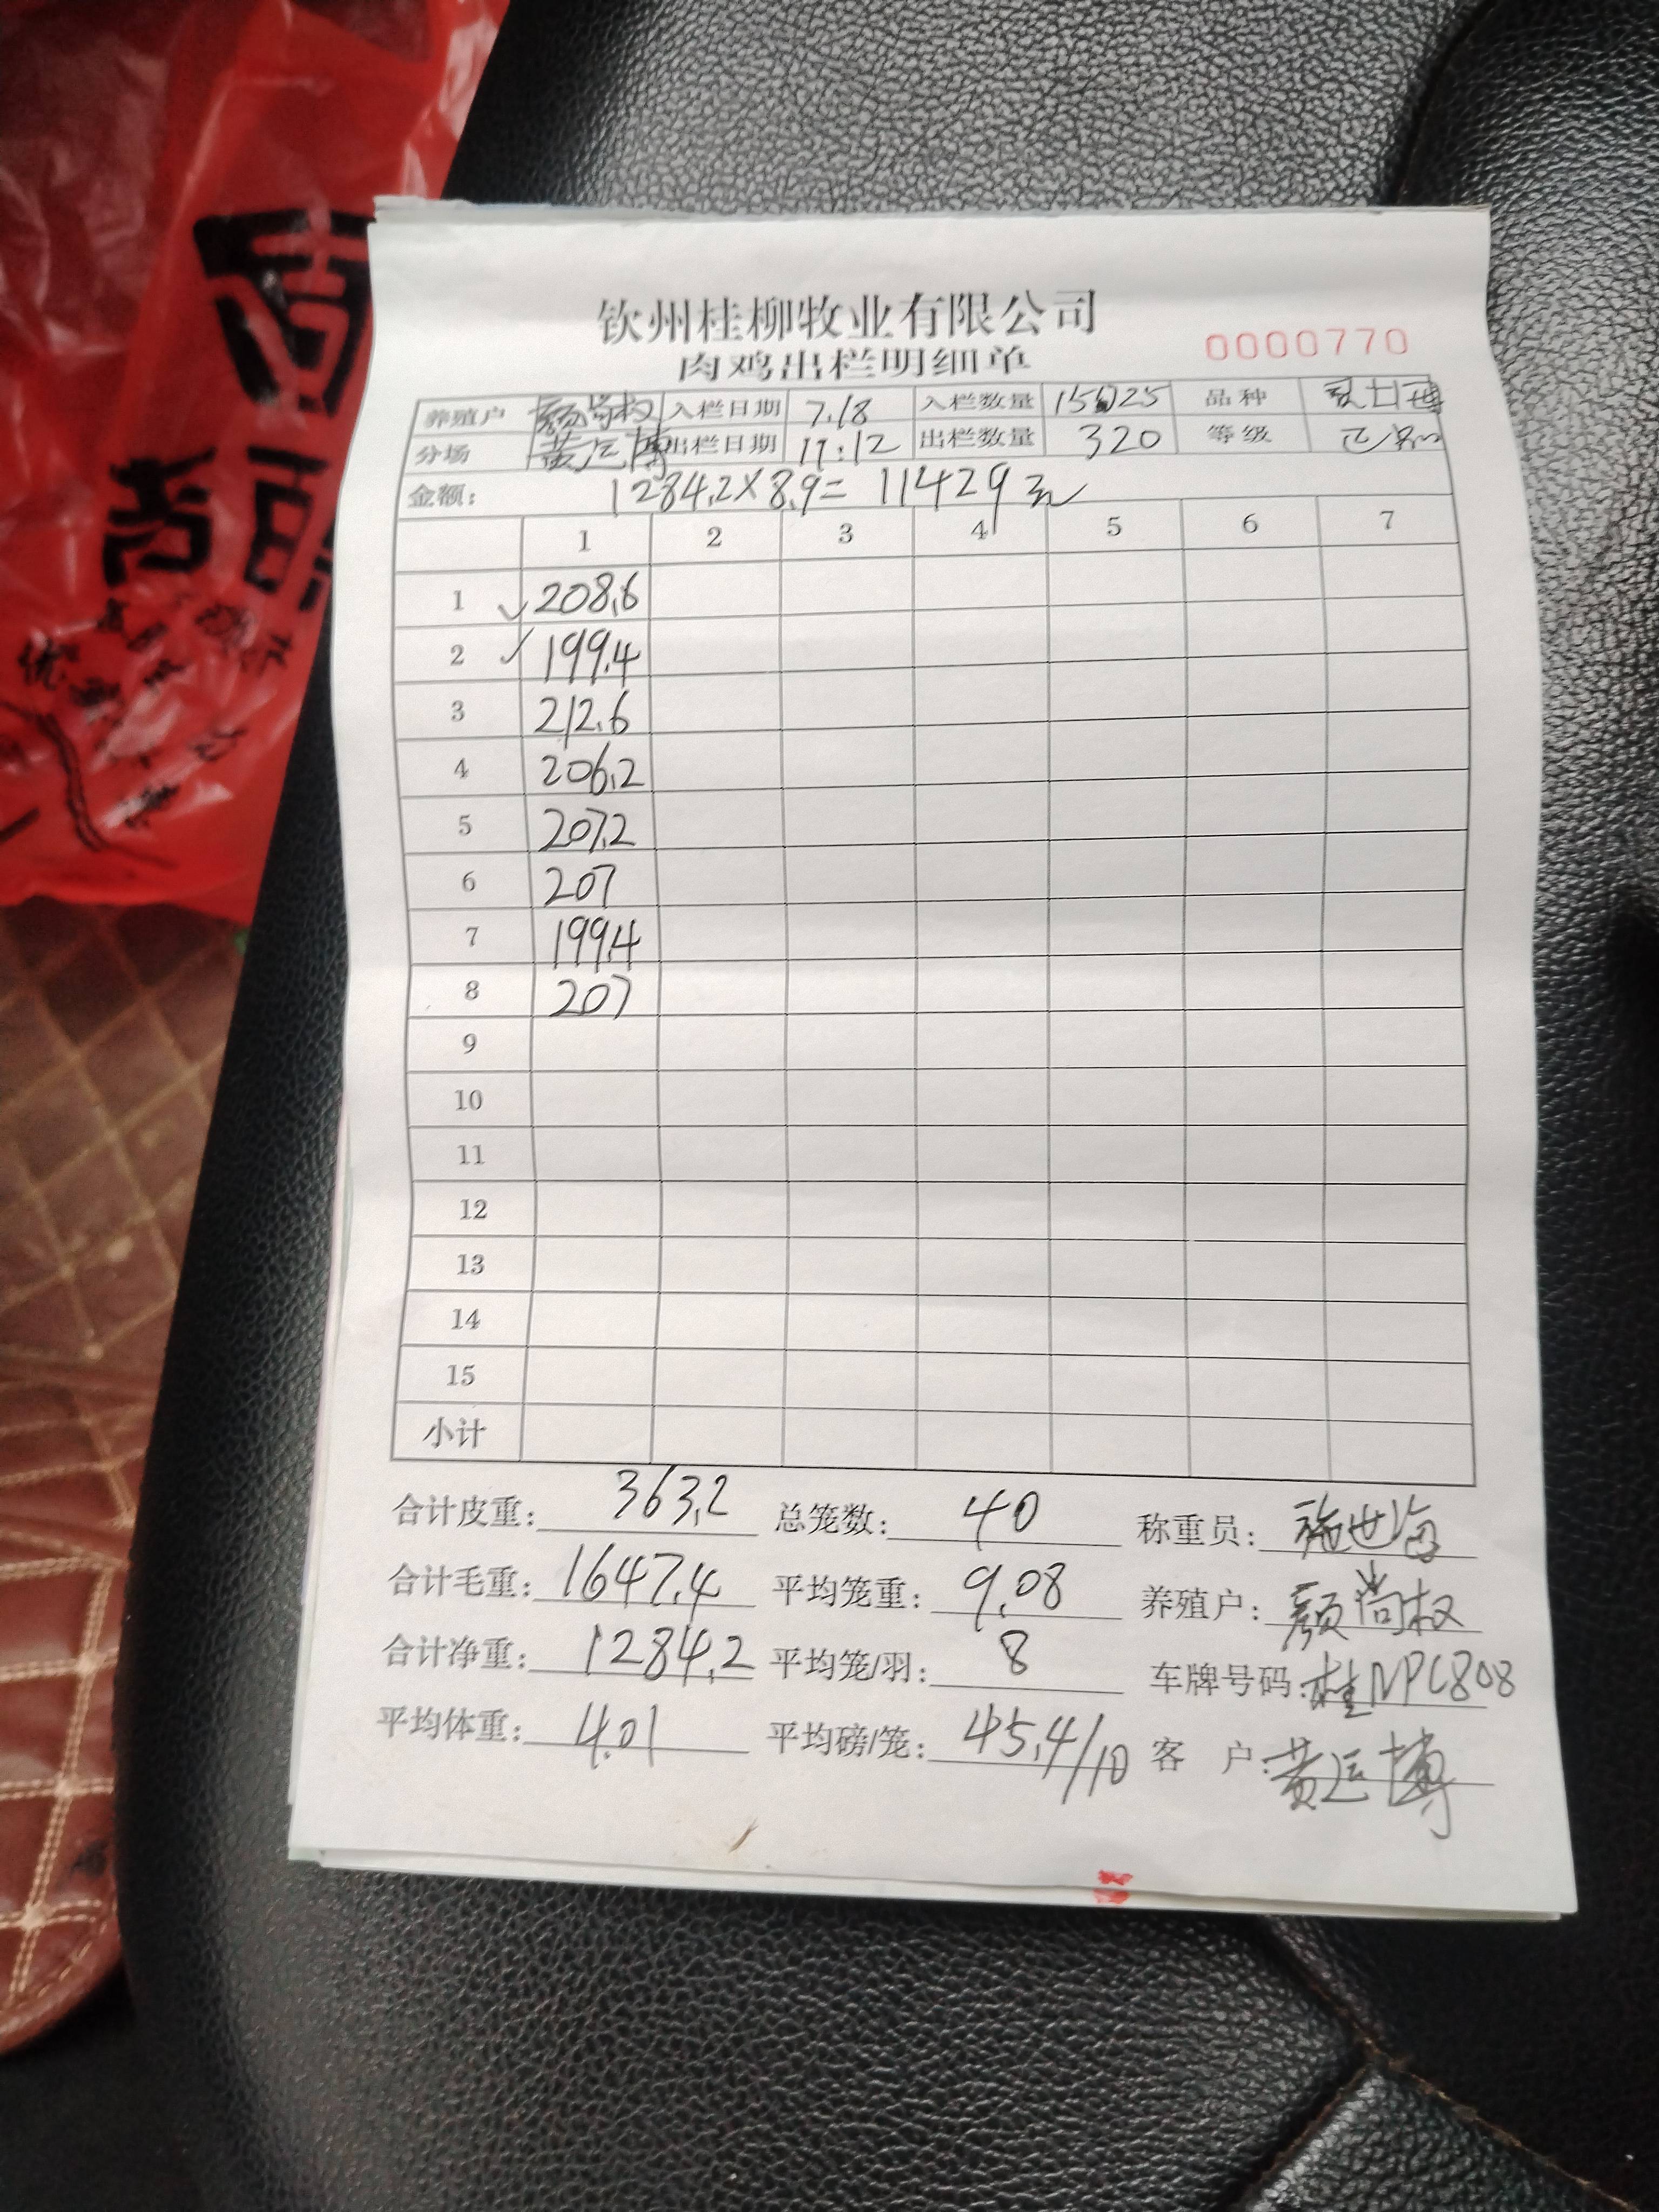 钦州桂柳牧业有限公司
肉鸡出栏明细单
0000770
养殖户 颜尚权 入栏日期 7.18 入栏数量 15025 品种
分场 黄运博 出栏日期 11:12 出栏数量 320 等级
金额: 1284.2×8.9= 11429元
1 2 3 4 5 6 7
1 ✓ 208.6
2 ✓ 199.4
3 212.6
4 206.2
5 207.2
6 207
7 199.4
8 207
9
10
11
12
13
14
15
小计
合计皮重: 363.2 总笼数: 40 称重员: 施世海
合计毛重: 1647.4 平均笼重: 9.08 养殖户: 颜尚权
合计净重: 1284.2 平均笼/羽: 8 车牌号码: 桂NPC808
平均体重: 4.01 平均磅/笼: 45.4/10 客 户: 黄运博